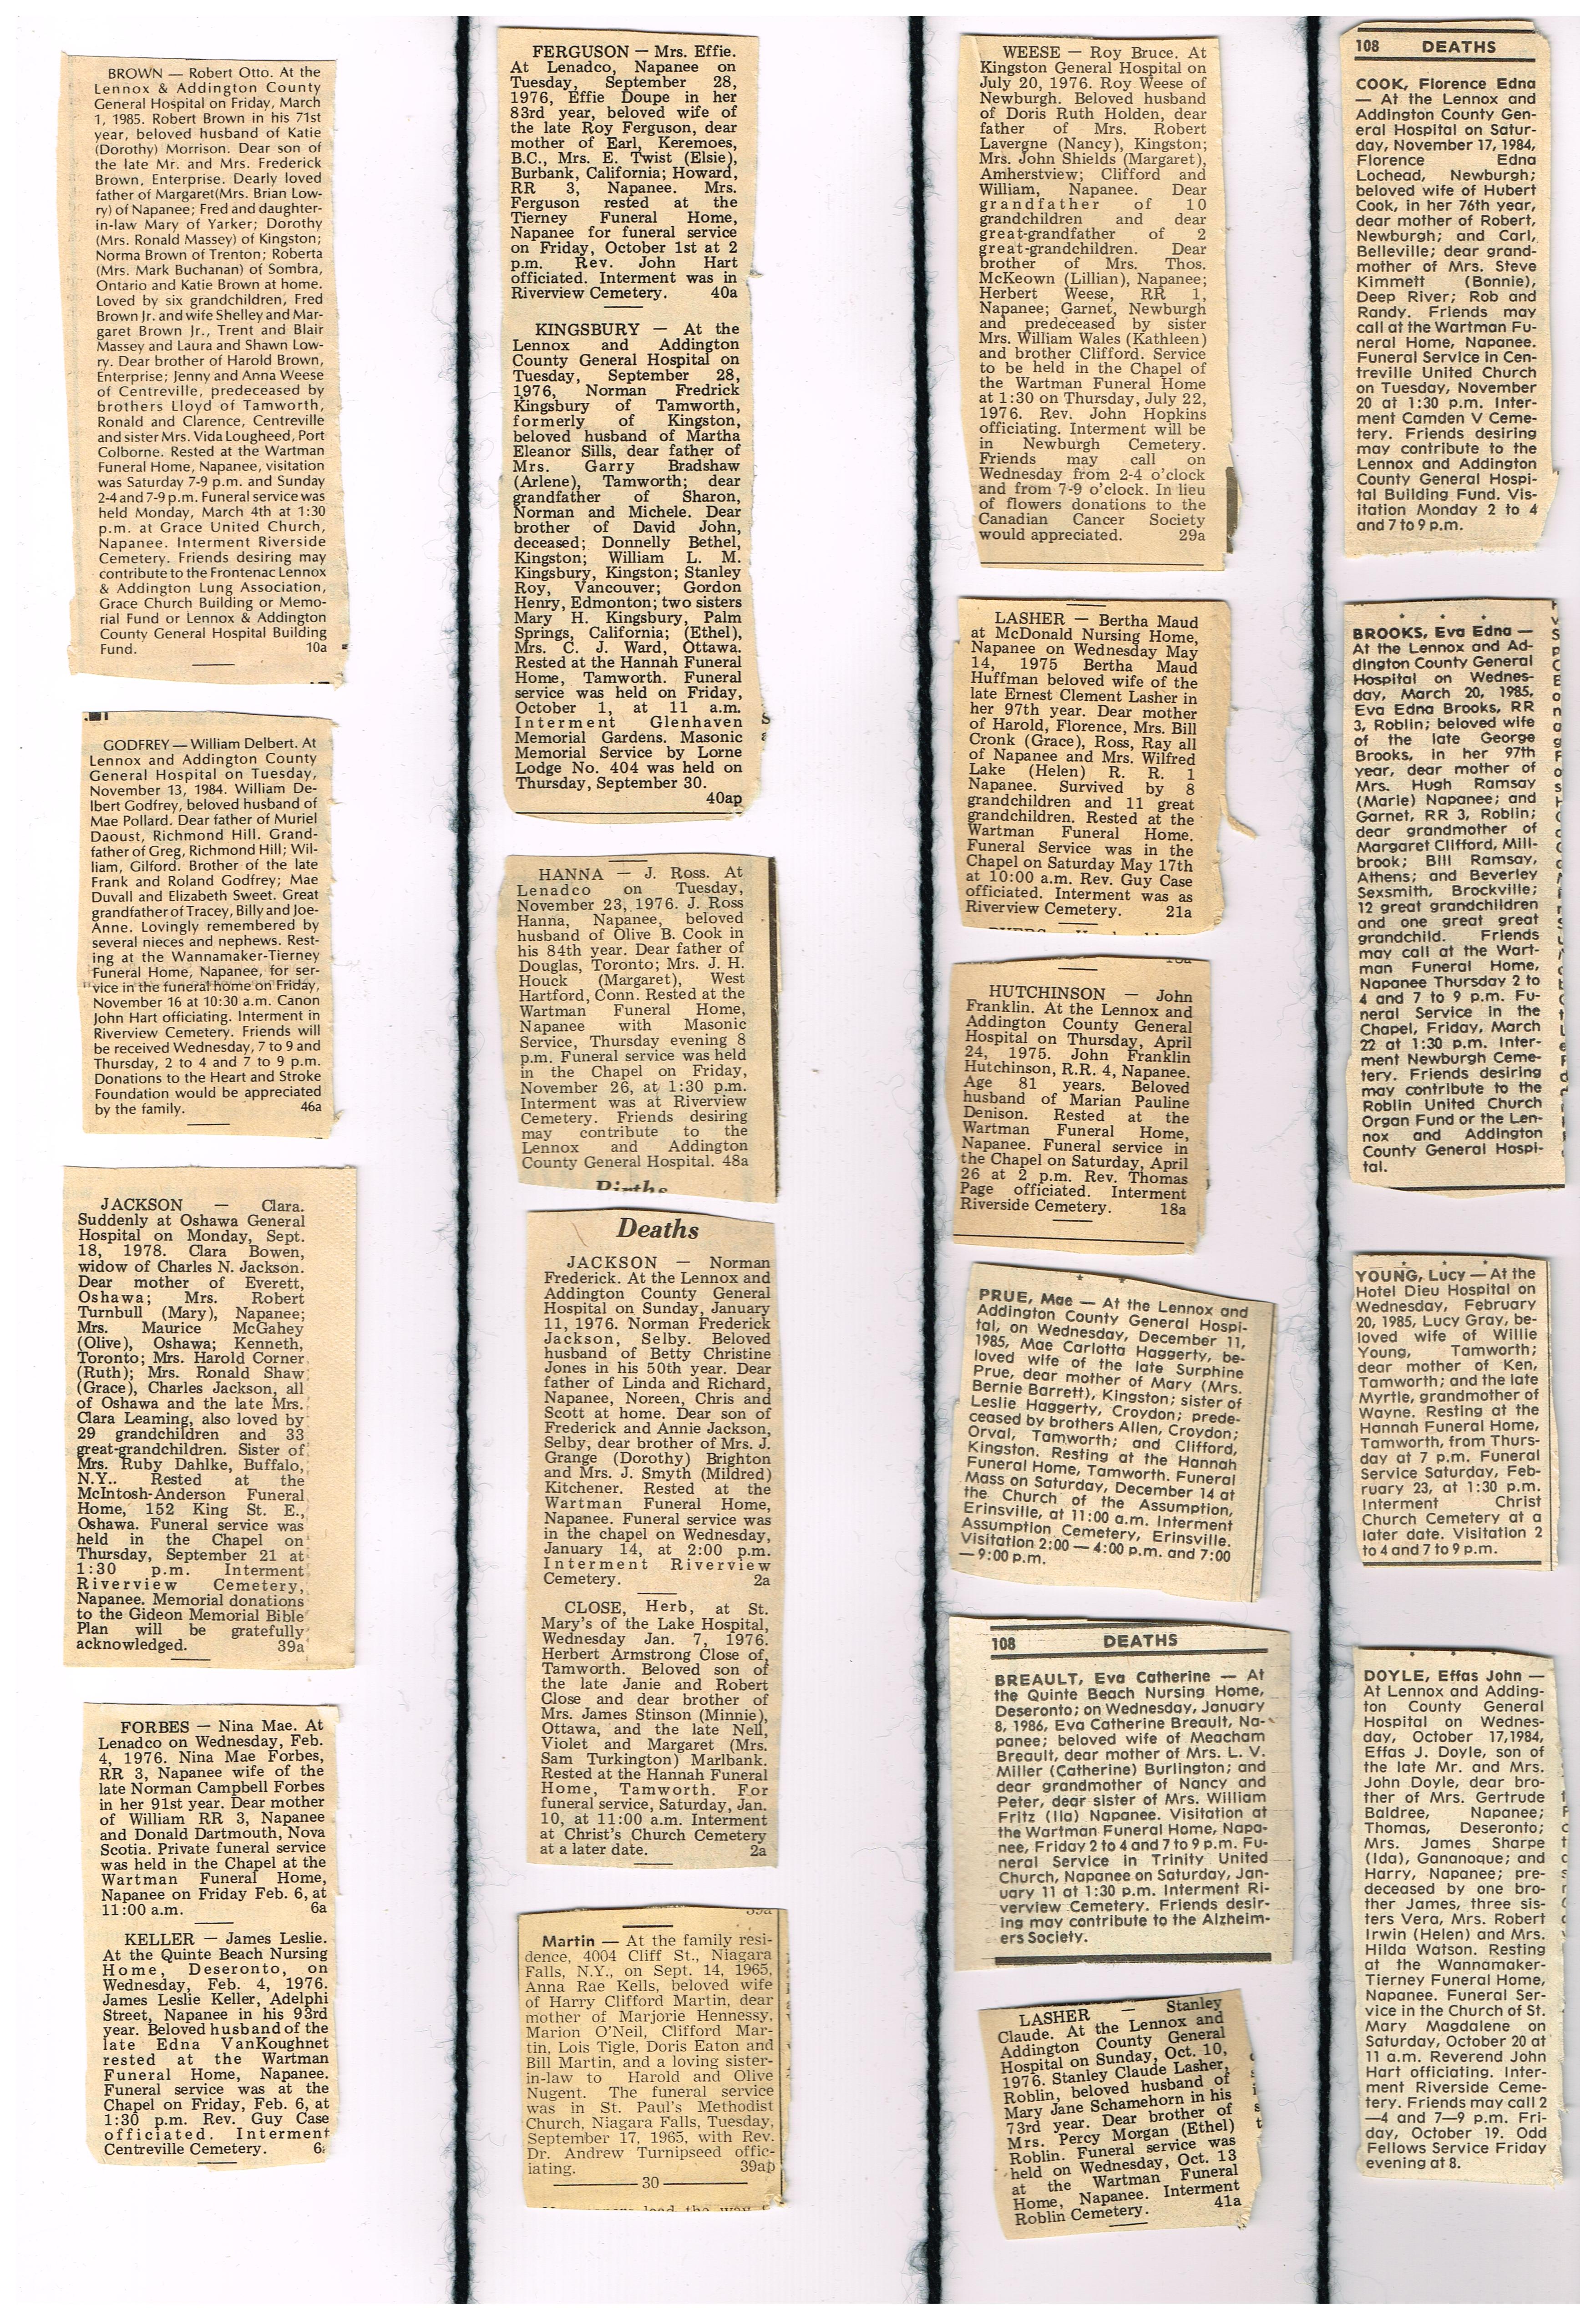 BROWN — Robert Otto. At the
Lennox & Addington County
General Hospital on Friday, March
1, 1985. Robert Brown in his 71st
year, beloved husband of Katie
(Dorothy) Morrison. Dear son of
the late Mr. and Mrs. Frederick
Brown, Enterprise. Dearly loved
father of Margaret(Mrs. Brian Low-
ry) of Napanee; Fred and daughter-
in-law Mary of Yarker; Dorothy
(Mrs. Ronald Massey) of Kingston;
Norma Brown of Trenton; Roberta
(Mrs. Mark Buchanan) of Sombra,
Ontario and Katie Brown at home.
Loved by six grandchildren, Fred
Brown Jr. and wife Shelley and Mar-
garet Brown Jr., Trent and Blair
Massey and Laura and Shawn Low-
ry. Dear brother of Harold Brown,
Enterprise; Jenny and Anna Weese
of Centreville, predeceased by
brothers Lloyd of Tamworth,
Ronald and Clarence, Centreville
and sister Mrs. Vida Lougheed, Port
Colborne. Rested at the Wartman
Funeral Home, Napanee, visitation
was Saturday 7-9 p.m. and Sunday
2-4 and 7-9 p.m. Funeral service was
held Monday, March 4th at 1:30
p.m. at Grace United Church,
Napanee. Interment Riverside
Cemetery. Friends desiring may
contribute to the Frontenac Lennox
& Addington Lung Association,
Grace Church Building or Memo-
rial Fund or Lennox & Addington
County General Hospital Building
Fund. 10a
GODFREY — William Delbert. At
Lennox and Addington County
General Hospital on Tuesday,
November 13, 1984. William De-
lbert Godfrey, beloved husband of
Mae Pollard. Dear father of Muriel
Daoust, Richmond Hill. Grand-
father of Greg, Richmond Hill; Wil-
liam, Gilford. Brother of the late
Frank and Roland Godfrey; Mae
Duvall and Elizabeth Sweet. Great
grandfather of Tracey, Billy and Joe-
Anne. Lovingly remembered by
several nieces and nephews. Rest-
ing at the Wannamaker-Tierney
Funeral Home, Napanee, for ser-
vice in the funeral home on Friday,
November 16 at 10:30 a.m. Canon
John Hart officiating. Interment in
Riverview Cemetery. Friends will
be received Wednesday, 7 to 9 and
Thursday, 2 to 4 and 7 to 9 p.m.
Donations to the Heart and Stroke
Foundation would be appreciated
by the family. 46a
JACKSON — Clara.
Suddenly at Oshawa General
Hospital on Monday, Sept.
18, 1978. Clara Bowen,
widow of Charles N. Jackson.
Dear mother of Everett,
Oshawa; Mrs. Robert
Turnbull (Mary), Napanee;
Mrs. Maurice McGahey
(Olive), Oshawa; Kenneth,
Toronto; Mrs. Harold Corner
(Ruth); Mrs. Ronald Shaw
(Grace), Charles Jackson, all
of Oshawa and the late Mrs.
Clara Leaming, also loved by
29 grandchildren and 33
great-grandchildren. Sister of
Mrs. Ruby Dahlke, Buffalo,
N.Y.. Rested at the
McIntosh-Anderson Funeral
Home, 152 King St. E.,
Oshawa. Funeral service was
held in the Chapel on
Thursday, September 21 at
1:30 p.m. Interment
Riverview Cemetery,
Napanee. Memorial donations
to the Gideon Memorial Bible
Plan will be gratefully
acknowledged. 39a
FORBES — Nina Mae. At
Lenadco on Wednesday, Feb.
4, 1976. Nina Mae Forbes,
RR 3, Napanee wife of the
late Norman Campbell Forbes
in her 91st year. Dear mother
of William RR 3, Napanee
and Donald Dartmouth, Nova
Scotia. Private funeral service
was held in the Chapel at the
Wartman Funeral Home,
Napanee on Friday Feb. 6, at
11:00 a.m. 6a
KELLER — James Leslie.
At the Quinte Beach Nursing
Home, Deseronto, on
Wednesday, Feb. 4, 1976.
James Leslie Keller, Adelphi
Street, Napanee in his 93rd
year. Beloved husband of the
late Edna VanKoughnet
rested at the Wartman
Funeral Home, Napanee.
Funeral service was at the
Chapel on Friday, Feb. 6, at
1:30 p.m. Rev. Guy Case
officiated. Interment
Centreville Cemetery. 6
FERGUSON — Mrs. Effie.
At Lenadco, Napanee on
Tuesday, September 28,
1976, Effie Doupe in her
83rd year, beloved wife of
the late Roy Ferguson, dear
mother of Earl, Keremoes,
B.C., Mrs. E. Twist (Elsie),
Burbank, California; Howard,
RR 3, Napanee. Mrs.
Ferguson rested at the
Tierney Funeral Home,
Napanee for funeral service
on Friday, October 1st at 2
p.m. Rev. John Hart
officiated. Interment was in
Riverview Cemetery. 40a
KINGSBURY — At the
Lennox and Addington
County General Hospital on
Tuesday, September 28,
1976, Norman Fredrick
Kingsbury of Tamworth,
formerly of Kingston,
beloved husband of Martha
Eleanor Sills, dear father of
Mrs. Garry Bradshaw
(Arlene), Tamworth; dear
grandfather of Sharon,
Norman and Michele. Dear
brother of David John,
deceased; Donnelly Bethel,
Kingston; William L. M.
Kingsbury, Kingston; Stanley
Roy, Vancouver; Gordon
Henry, Edmonton; two sisters
Mary H. Kingsbury, Palm
Springs, California; (Ethel),
Mrs. C. J. Ward, Ottawa.
Rested at the Hannah Funeral
Home, Tamworth. Funeral
service was held on Friday,
October 1, at 11 a.m.
Interment Glenhaven
Memorial Gardens. Masonic
Memorial Service by Lorne
Lodge No. 404 was held on
Thursday, September 30.
40ap
HANNA — J. Ross. At
Lenadco on Tuesday,
November 23, 1976. J. Ross
Hanna, Napanee, beloved
husband of Olive B. Cook in
his 84th year. Dear father of
Douglas, Toronto; Mrs. J. H.
Houck (Margaret), West
Hartford, Conn. Rested at the
Wartman Funeral Home,
Napanee with Masonic
Service, Thursday evening 8
p.m. Funeral service was held
in the Chapel on Friday,
November 26, at 1:30 p.m.
Interment was at Riverview
Cemetery. Friends desiring
may contribute to the
Lennox and Addington
County General Hospital. 48a
Births
Deaths
JACKSON — Norman
Frederick. At the Lennox and
Addington County General
Hospital on Sunday, January
11, 1976. Norman Frederick
Jackson, Selby. Beloved
husband of Betty Christine
Jones in his 50th year. Dear
father of Linda and Richard,
Napanee, Noreen, Chris and
Scott at home. Dear son of
Frederick and Annie Jackson,
Selby, dear brother of Mrs. J.
Grange (Dorothy) Brighton
and Mrs. J. Smyth (Mildred)
Kitchener. Rested at the
Wartman Funeral Home,
Napanee. Funeral service was
in the chapel on Wednesday,
January 14, at 2:00 p.m.
Interment Riverview
Cemetery. 2a
CLOSE, Herb, at St.
Mary's of the Lake Hospital,
Wednesday Jan. 7, 1976.
Herbert Armstrong Close of
Tamworth. Beloved son of
the late Janie and Robert
Close and dear brother of
Mrs. James Stinson (Minnie),
Ottawa, and the late Nell,
Violet and Margaret (Mrs.
Sam Turkington) Marlbank.
Rested at the Hannah Funeral
Home, Tamworth. For
funeral service, Saturday, Jan.
10, at 11:00 a.m. Interment
at Christ's Church Cemetery
at a later date. 2a
Martin — At the family resi-
dence, 4004 Cliff St., Niagara
Falls, N.Y., on Sept. 14, 1965,
Anna Rae Kells, beloved wife
of Harry Clifford Martin, dear
mother of Marjorie Hennessy,
Marion O'Neil, Clifford Mar-
tin, Lois Tigle, Doris Eaton and
Bill Martin, and a loving sister-
in-law to Harold and Olive
Nugent. The funeral service
was in St. Paul's Methodist
Church, Niagara Falls, Tuesday,
September 17, 1965, with Rev.
Dr. Andrew Turnipseed offic-
iating. 39ap
30
WEESE — Roy Bruce. At
Kingston General Hospital on
July 20, 1976. Roy Weese of
Newburgh. Beloved husband
of Doris Ruth Holden, dear
father of Mrs. Robert
Lavergne (Nancy), Kingston;
Mrs. John Shields (Margaret),
Amherstview; Clifford and
William, Napanee. Dear
grandfather of 10
grandchildren and dear
great-grandfather of 2
great-grandchildren. Dear
brother of Mrs. Thos.
McKeown (Lillian), Napanee;
Herbert Weese, RR 1,
Napanee; Garnet, Newburgh
and predeceased by sister
Mrs. William Wales (Kathleen)
and brother Clifford. Service
to be held in the Chapel of
the Wartman Funeral Home
at 1:30 on Thursday, July 22,
1976. Rev. John Hopkins
officiating. Interment will be
in Newburgh Cemetery.
Friends may call on
Wednesday from 2-4 o'clock
and from 7-9 o'clock. In lieu
of flowers donations to the
Canadian Cancer Society
would appreciated. 29a
LASHER — Bertha Maud
at McDonald Nursing Home,
Napanee on Wednesday May
14, 1975 Bertha Maud
Huffman beloved wife of the
late Ernest Clement Lasher in
her 97th year. Dear mother
of Harold, Florence, Mrs. Bill
Cronk (Grace), Ross, Ray all
of Napanee and Mrs. Wilfred
Lake (Helen) R. R. 1
Napanee. Survived by 8
grandchildren and 11 great
grandchildren. Rested at the
Wartman Funeral Home.
Funeral Service was in the
Chapel on Saturday May 17th
at 10:00 a.m. Rev. Guy Case
officiated. Interment was as
Riverview Cemetery. 21a
HUTCHINSON — John
Franklin. At the Lennox and
Addington County General
Hospital on Thursday, April
24, 1975. John Franklin
Hutchinson, R.R. 4, Napanee.
Age 81 years. Beloved
husband of Marian Pauline
Denison. Rested at the
Wartman Funeral Home,
Napanee. Funeral service in
the Chapel on Saturday, April
26 at 2 p.m. Rev. Thomas
Page officiated. Interment
Riverside Cemetery. 18a
PRUE, Mae — At the Lennox and
Addington County General Hospi-
tal, on Wednesday, December 11,
1985, Mae Carlotta Haggerty, be-
loved wife of the late Surphine
Prue, dear mother of Mary (Mrs.
Bernie Barrett), Kingston; sister of
Leslie Haggerty, Croydon; prede-
ceased by brothers Allen, Croydon;
Orval, Tamworth; and Clifford,
Kingston. Resting at the Hannah
Funeral Home, Tamworth. Funeral
Mass on Saturday, December 14 at
the Church of the Assumption,
Erinsville, at 11:00 a.m. Interment
Assumption Cemetery, Erinsville.
Visitation 2:00 — 4:00 p.m. and 7:00
— 9:00 p.m.
108 DEATHS
BREAULT, Eva Catherine — At
the Quinte Beach Nursing Home,
Deseronto; on Wednesday, January
8, 1986, Eva Catherine Breault, Na-
panee; beloved wife of Meacham
Breault, dear mother of Mrs. L. V.
Miller (Catherine) Burlington; and
dear grandmother of Nancy and
Peter, dear sister of Mrs. William
Fritz (Ila) Napanee. Visitation at
the Wartman Funeral Home, Napa-
nee, Friday 2 to 4 and 7 to 9 p.m. Fu-
neral Service in Trinity United
Church, Napanee on Saturday, Jan-
uary 11 at 1:30 p.m. Interment Ri-
verview Cemetery. Friends desir-
ing may contribute to the Alzheim-
ers Society.
LASHER — Stanley
Claude. At the Lennox and
Addington County General
Hospital on Sunday, Oct. 10,
1976. Stanley Claude Lasher,
Roblin, beloved husband of
Mary Jane Schamehorn in his
73rd year. Dear brother of
Mrs. Percy Morgan (Ethel)
Roblin. Funeral service was
held on Wednesday, Oct. 13
at the Wartman Funeral
Home, Napanee. Interment
Roblin Cemetery. 41a
108 DEATHS
COOK, Florence Edna
— At the Lennox and
Addington County Gen-
eral Hospital on Satur-
day, November 17, 1984,
Florence Edna
Lochead, Newburgh;
beloved wife of Hubert
Cook, in her 76th year,
dear mother of Robert,
Newburgh; and Carl,
Belleville; dear grand-
mother of Mrs. Steve
Kimmett (Bonnie),
Deep River; Rob and
Randy. Friends may
call at the Wartman Fu-
neral Home, Napanee.
Funeral Service in Cen-
treville United Church
on Tuesday, November
20 at 1:30 p.m. Inter-
ment Camden V Ceme-
tery. Friends desiring
may contribute to the
Lennox and Addington
County General Hospi-
tal Building Fund. Vis-
itation Monday 2 to 4
and 7 to 9 p.m.
BROOKS, Eva Edna —
At the Lennox and Ad-
dington County General
Hospital on Wednes-
day, March 20, 1985,
Eva Edna Brooks, RR
3, Roblin; beloved wife
of the late George
Brooks, in her 97th
year, dear mother of
Mrs. Hugh Ramsay
(Marie) Napanee; and
Garnet, RR 3, Roblin;
dear grandmother of
Margaret Clifford, Mill-
brook; Bill Ramsay,
Athens; and Beverley
Sexsmith, Brockville;
12 great grandchildren
and one great great
grandchild. Friends
may call at the Wart-
man Funeral Home,
Napanee Thursday 2 to
4 and 7 to 9 p.m. Fu-
neral Service in the
Chapel, Friday, March
22 at 1:30 p.m. Inter-
ment Newburgh Ceme-
tery. Friends desiring
may contribute to the
Roblin United Church
Organ Fund or the Len-
nox and Addington
County General Hospi-
tal.
YOUNG, Lucy — At the
Hotel Dieu Hospital on
Wednesday, February
20, 1985, Lucy Gray, be-
loved wife of Willie
Young, Tamworth;
dear mother of Ken,
Tamworth; and the late
Myrtle, grandmother of
Wayne. Resting at the
Hannah Funeral Home,
Tamworth, from Thurs-
day at 7 p.m. Funeral
Service Saturday, Feb-
ruary 23, at 1:30 p.m.
Interment Christ
Church Cemetery at a
later date. Visitation 2
to 4 and 7 to 9 p.m.
DOYLE, Effas John —
At Lennox and Adding-
ton County General
Hospital on Wednes-
day, October 17,1984,
Effas J. Doyle, son of
the late Mr. and Mrs.
John Doyle, dear bro-
ther of Mrs. Gertrude
Baldree, Napanee;
Thomas, Deseronto;
Mrs. James Sharpe
(Ida), Gananoque; and
Harry, Napanee; pre-
deceased by one bro-
ther James, three sis-
ters Vera, Mrs. Robert
Irwin (Helen) and Mrs.
Hilda Watson. Resting
at the Wannamaker-
Tierney Funeral Home,
Napanee. Funeral Ser-
vice in the Church of St.
Mary Magdalene on
Saturday, October 20 at
11 a.m. Reverend John
Hart officiating. Inter-
ment Riverside Ceme-
tery. Friends may call 2
—4 and 7—9 p.m. Fri-
day, October 19. Odd
Fellows Service Friday
evening at 8.